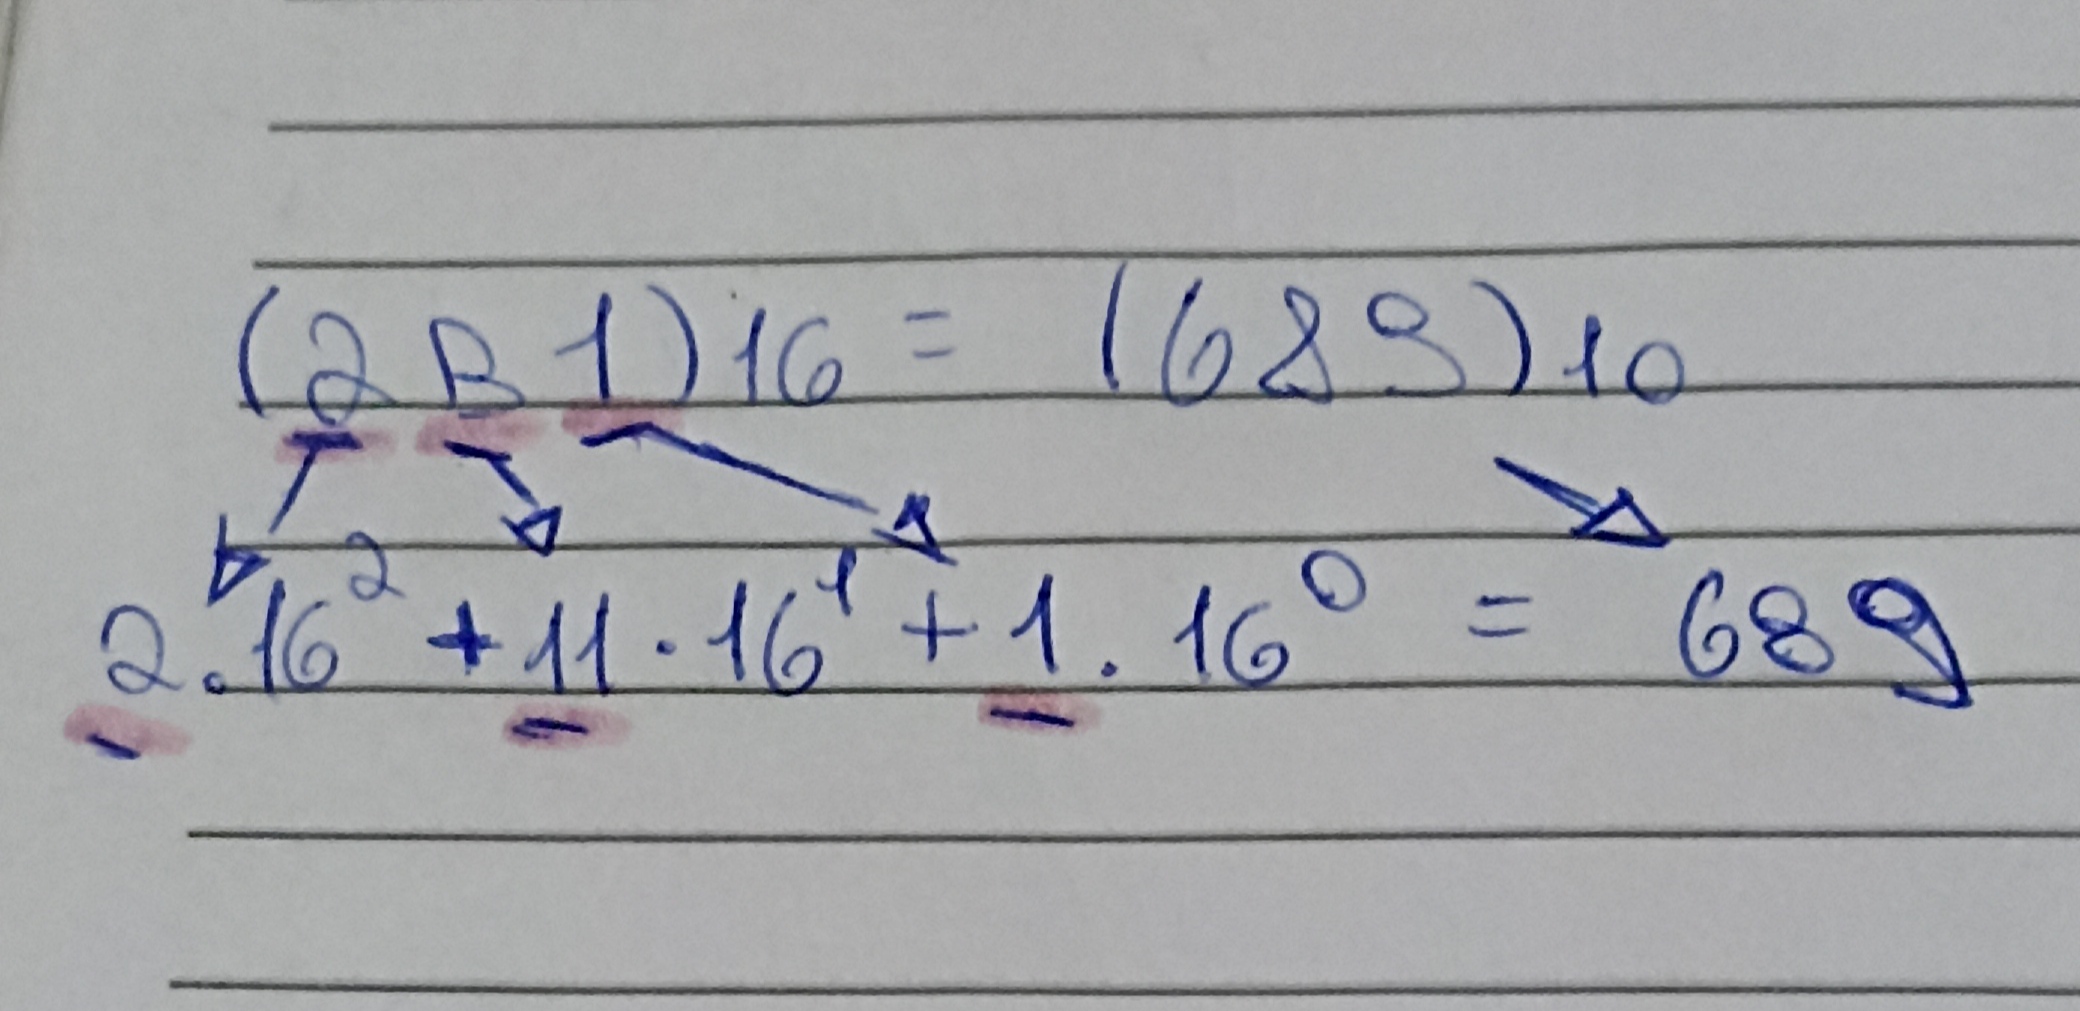 (2B1)16 = (689)10
2.16² + 11.16¹ + 1.16⁰ = 689